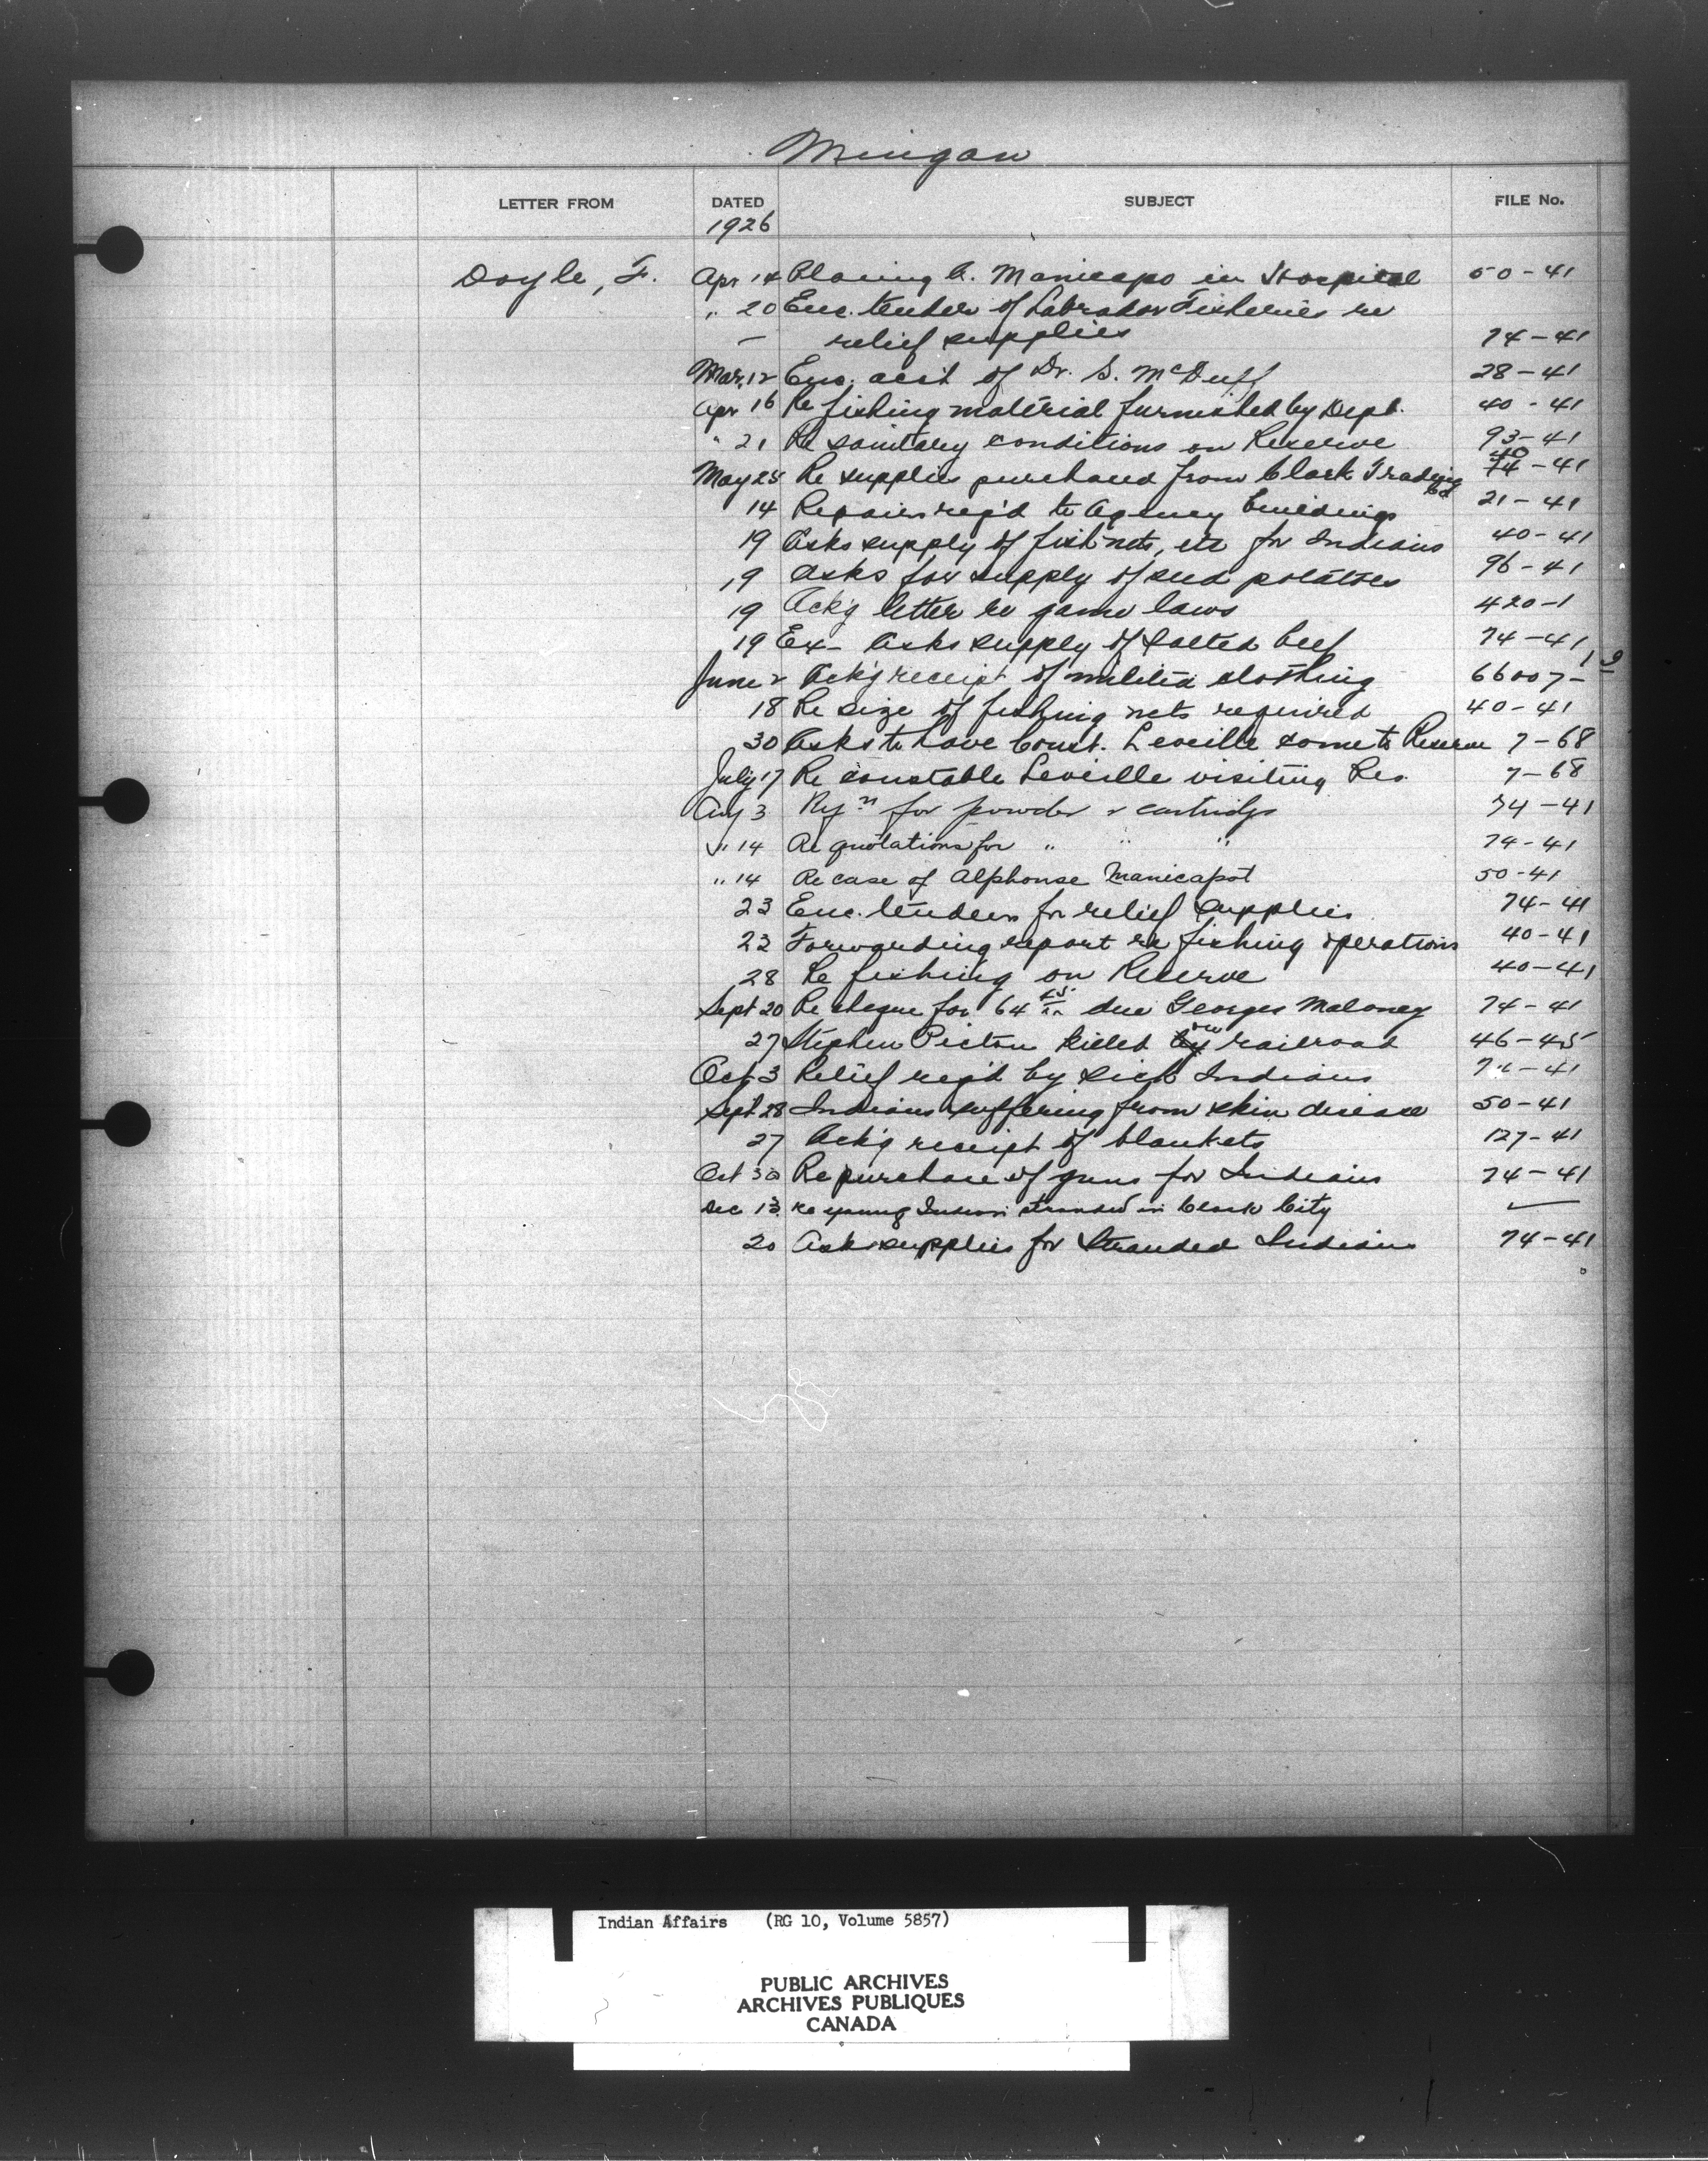 Mingan
LETTER FROM DATED SUBJECT FILE No.
1926
Doyle, F. Apr 14 Placing A. Manicapo in Hospital 50-41
" 20 Enc. tender of Labrador Fisheries re
— relief supplies 74-41
Mar. 12 Enc. acct of Dr. S. McDuff 28-41
Apr 16 Re fishing material furnished by Dept. 40-41
" 21 Re sanitary conditions on Reserve 93-41
May 25 Re supplies purchased from Clark Trading Co 40 74-41
14 Repairs req'd to Agency buildings 21-41
19 Asks supply of fish nets, etc for Indians 40-41
19 Asks for supply of seed potatoes 96-41
19 Ack'g letter re game laws 420-1
19 Ex- Asks supply of salted beef 74-41
June 2 Ack'g receipt of militia clothing 66007-1
18 Re size of fishing nets required 40-41
30 Asks to have Const. Leveille come to Reserve 7-68
July 17 Re constable Leveille visiting Res. 7-68
Aug 3 Rqn for powder & cartridgs 74-41
" 14 Re quotations for " " " 74-41
" 14 Re case of Alphonse Manicapot 50-41
23 Enc. tenders for relief supplies 74-41
23 Forwarding report re fishing operations 40-41
28 Re fishing on Reserve 40-41
Sept 20 Re cheque for 64 due Georges Maloney 74-41
27 Stephen Picton killed by on railroad 46-45
Oct 3 Relief req'd by sick Indians 74-41
Sept 28 Indians suffering from skin disease 50-41
27 Ack'g receipt of blankets 127-41
Oct 30 Re purchase of guns for Indians 74-41
Dec 13 Re young Indian stranded in Clark City —
20 Asks supplies for Stranded Indians 74-41
Indian Affairs (RG 10, Volume 5857)
PUBLIC ARCHIVES
ARCHIVES PUBLIQUES
CANADA